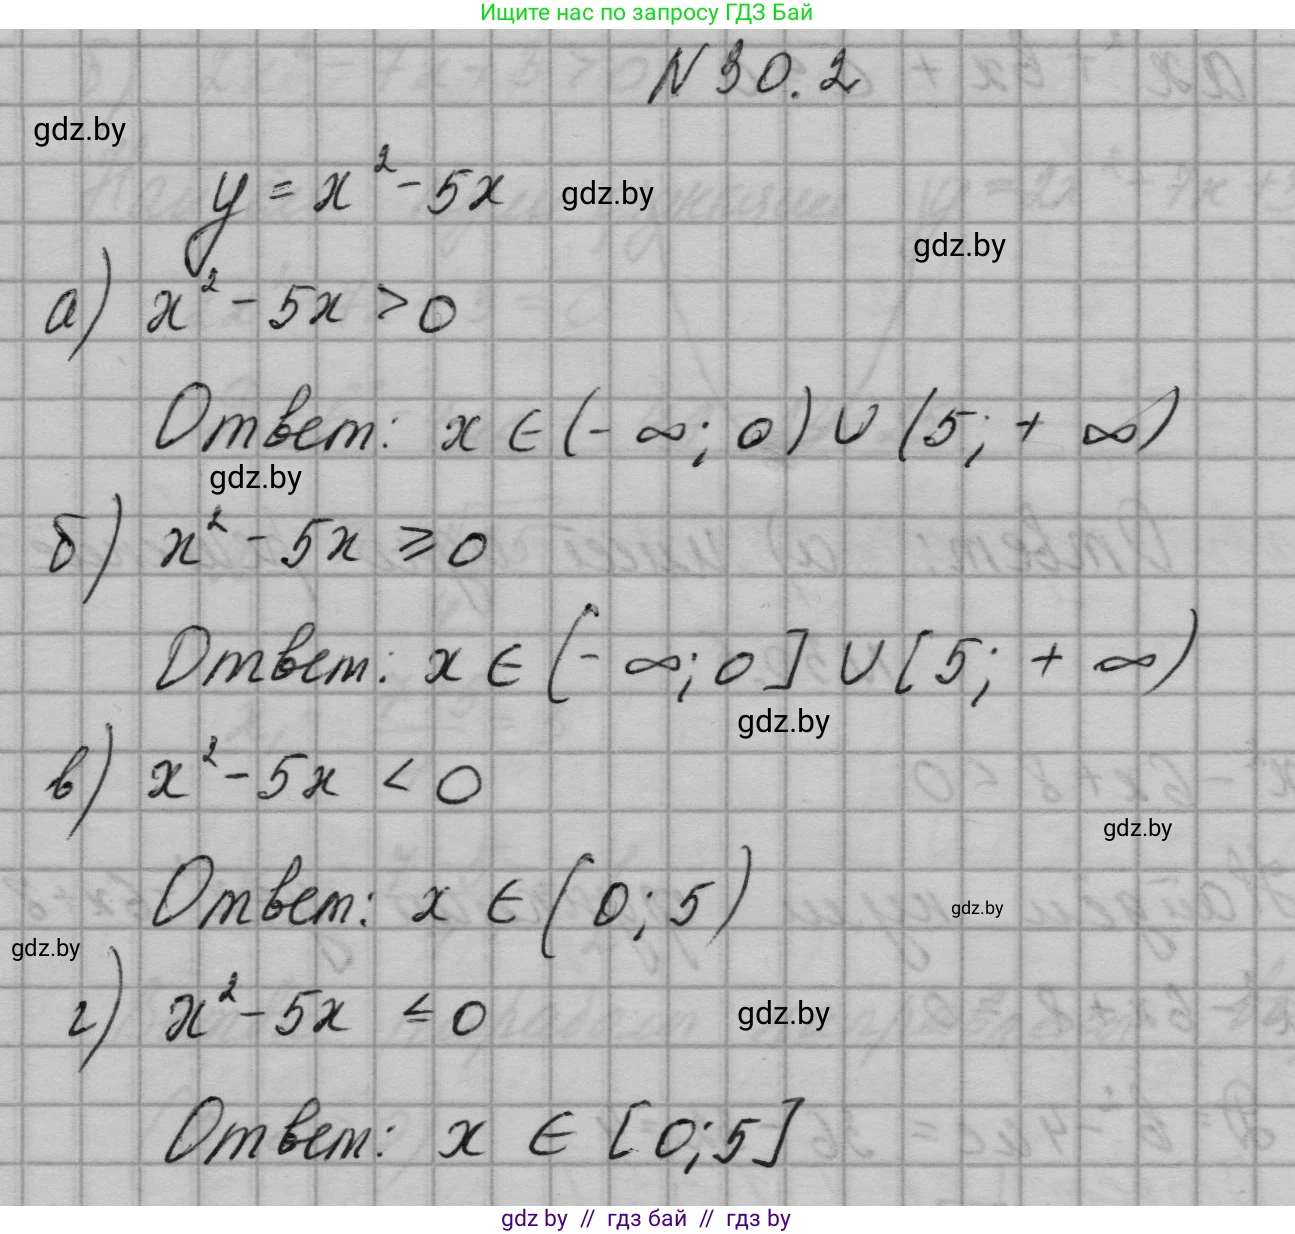 Ищите нас по запросу ГДЗ Бай
N 30.2
gdz.by
y = x² - 5x
gdz.by
gdz.by
а) x² - 5x > 0
Ответ: x ∈ (- ∞; 0) ∪ (5; + ∞)
gdz.by
б) x² - 5x ⩾ 0
Ответ: x ∈ (- ∞; 0] ∪ [5; + ∞)
gdz.by
в) x² - 5x < 0
gdz.by
Ответ: x ∈ (0; 5)
gdz.by
gdz.by
г) x² - 5x ≤ 0
gdz.by
Ответ: x ∈ [0; 5]
gdz by // гдз бай // гдз by